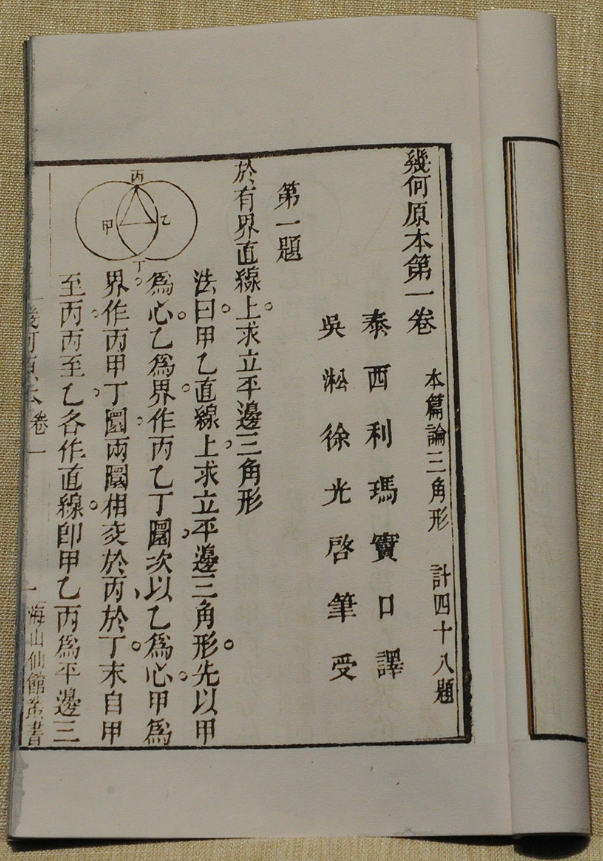 幾何原本第一卷 本篇論三角形 計四十八題
泰西利瑪竇口譯
吳淞徐光啓筆受
第一題
於有界直線上求立平邊三角形
法曰甲乙直線上求立平邊三角形先以甲
爲心乙爲界作丙乙丁圜次以乙爲心甲爲
界作丙甲丁圜兩圜相交於丙於丁末自甲
至丙丙至乙各作直線卽甲乙丙爲平邊三
丙
甲 乙
丁
幾何原本 卷一 一 海山仙館叢書